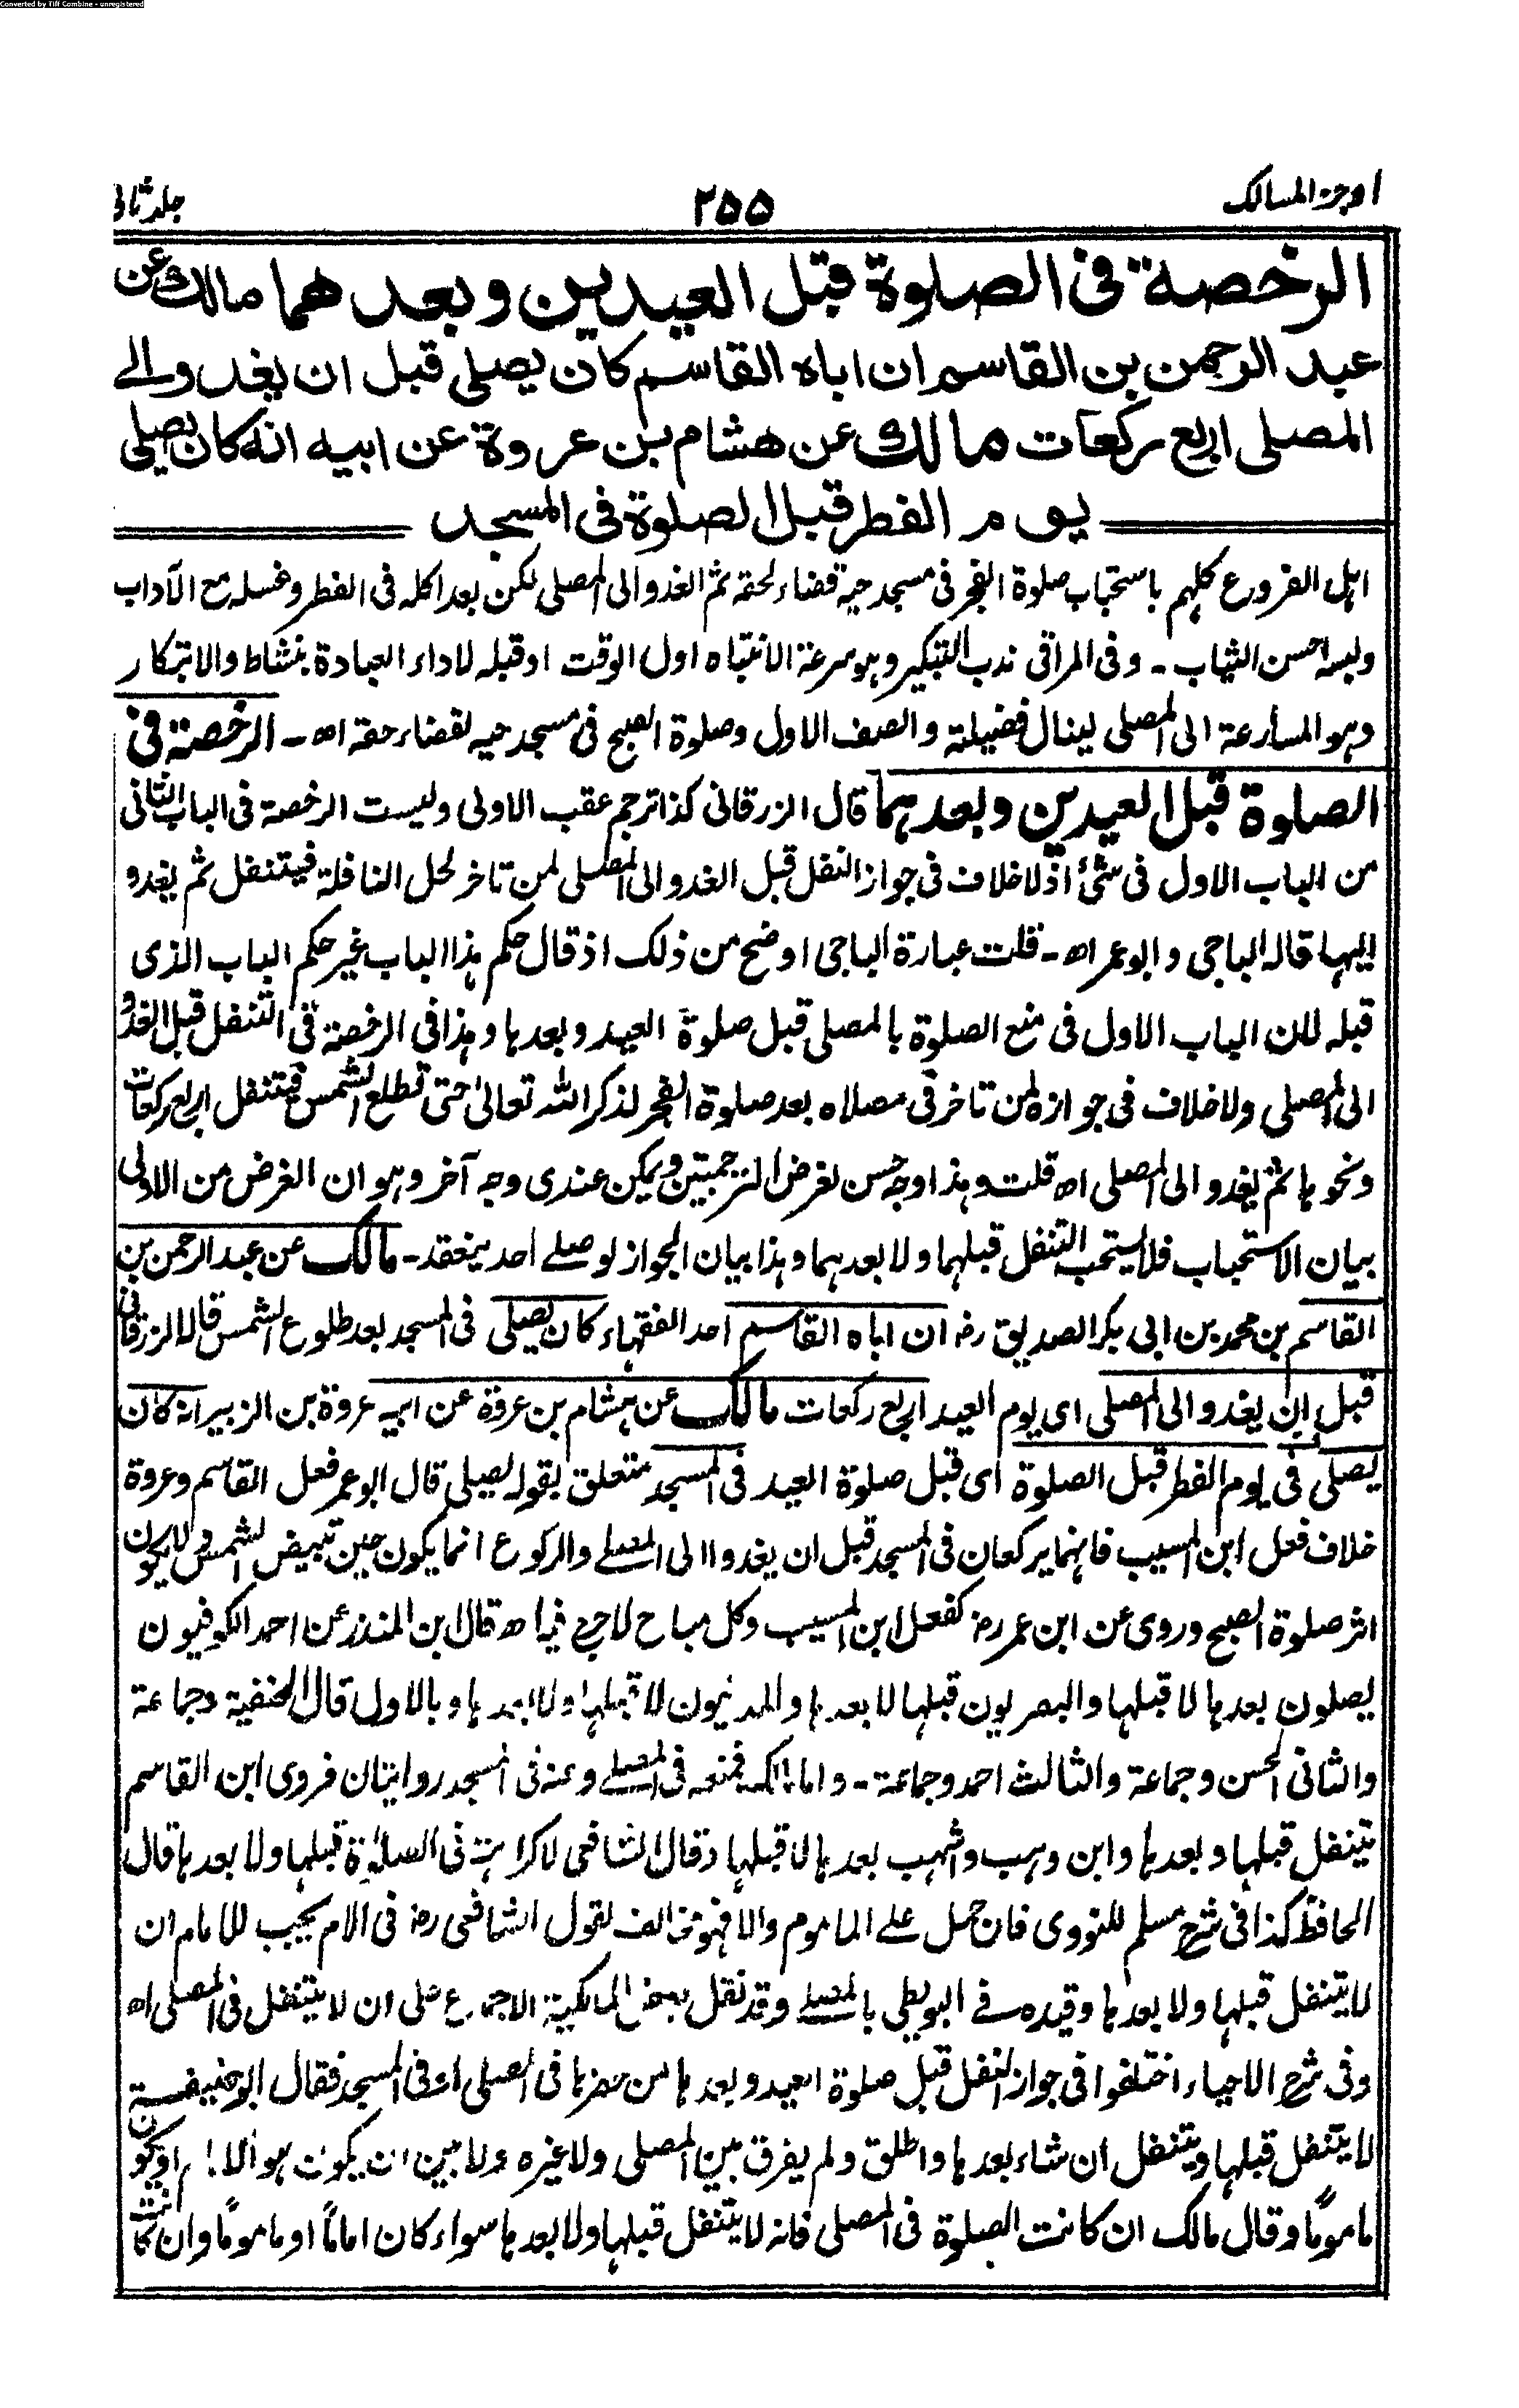 Converted by Tiff Combine - unregistered
اوجز المسالك
٢٥٥
جلد ثانی
الرخصة فی الصلوة قبل العیدین وبعدهما مالك عن
عبد الرحمن بن القاسم ان اباه القاسم کان یصلی قبل ان یغدو الے
المصلی اربع رکعات مالك عن هشام بن عروة عن ابیه انه کان یصلی
یوم الفطر قبل الصلوة فی المسجد
اہل الفروع کلہم باستحباب صلوة الفجر فی مسجد حیہ قضاء لحقہ ثم الغدو الی المصلی لکن بعد اکلہ فی الفطر وغسلہ مع الآداب
ولبسہ احسن الثیاب ـ وفی المراقی ندب التبکیر وہو سرعۃ الانتباہ اول الوقت او قبلہ لاداء العبادة بنشاط والابتکار
وہو المسارعۃ الی المصلی لینال فضیلتہ والصف الاول وصلوة الصبح فی مسجد حیہ لقضاء حقہ اھ ـ الرخصة فی
الصلوة قبل العیدین وبعدہما قال الزرقانی کذا ترجم عقب الاولی ولیست الرخصۃ فی الباب الثانی
من الباب الاول فی شئ اذ لا خلاف فی جواز النفل قبل الغدو الی المصلی لمن تاخر لحل النافلۃ فیتنفل ثم یغدو
الیہا قالہ الباجی وابو عمر اھ ـ قلت عبارة الباجی اوضح من ذلک اذ قال حکم ہذا الباب غیر حکم الباب الذی
قبلہ لان الباب الاول فی منع الصلوة بالمصلی قبل صلوة العید وبعدہا وہذا فی الرخصۃ فی التنفل قبل الغدو
الی المصلی ولا خلاف فی جوازہ لمن تاخر فی مصلاہ بعد صلوة الفجر لذکر اللہ تعالیٰ حتی تطلع الشمس فیتنفل اربع رکعات
ونحوہا ثم یغدو الی المصلی اھ قلت وہذا وجہ حسن لغرض الترجمتین ویمکن عندی وجہ آخر وہو ان الغرض من الاولی
بیان الاستحباب فلا یستحب التنفل قبلہما ولا بعدہما وہذا بیان الجواز لو صلے احد ینعقد ـ مالک عن عبد الرحمن بن
القاسم بن محمد بن ابی بکر الصدیق رض ان اباہ القاسم احد الفقہاء کان یصلی فی المسجد بعد طلوع الشمس قالہ الزرقانی
قبل ان یغدو الی المصلی ای یوم العید اربع رکعات مالک عن ہشام بن عروة عن ابیہ عروة بن الزبیر انہ کان
یصلی فی یوم الفطر قبل الصلوة ای قبل صلوة العید فی المسجد متعلق بقولہ یصلی قال ابو عمر فعل القاسم وعروة
خلاف فعل ابن المسیب فانہما یرکعان فی المسجد قبل ان یغدوا الی المصلے والرکوع انما یکون حین تبیض الشمس ولا یکون
اثر صلوة الصبح وروی عن ابن عمر رض کفعل ابن المسیب وکل مباح لا حرج فیہ اھ قال ابن المنذر عن احمد الکوفیون
یصلون بعدہا لا قبلہا والبصریون قبلہا لا بعدہا والمدنیون لا قبلہا ولا بعدہا وبالاول قال الحنفیۃ وجماعۃ
والثانی الحسن وجماعۃ والثالث احمد وجماعۃ ـ واما مالک فمنعہ فی المصلے وعنہ فی المسجد روایتان فروی ابن القاسم
یتنفل قبلہا وبعدہا وابن وہب واشہب بعدہا لا قبلہا وقال الشافعی لا کراہۃ فی الصلوة قبلہا ولا بعدہا قال
الحافظ کذا فی شرح مسلم للنووی فان حمل علے الماموم والا فہو مخالف لقول الشافعی رض فی الام یجب للامام ان
لا یتنفل قبلہا ولا بعدہا وقیدہ فے البویطی بالمصلے وقد نقل بعض المالکیۃ الاجماع علی ان لا یتنفل فی المصلی اھ
وفی شرح الاحیاء اختلفوا فی جواز النفل قبل صلوة العید وبعدہا لمن حضرہا فی المصلی او فی المسجد فقال ابو حنیفۃ
لا یتنفل قبلہا ویتنفل ان شاء بعدہا واطلق ولم یفرق بین المصلی ولا غیرہ ولا بین ان یکون ہو الامام او یکون
ماموما وقال مالک ان کانت الصلوة فی المصلی فانہ لا یتنفل قبلہا ولا بعدہا سواء کان اماماً او ماموما وان کانت